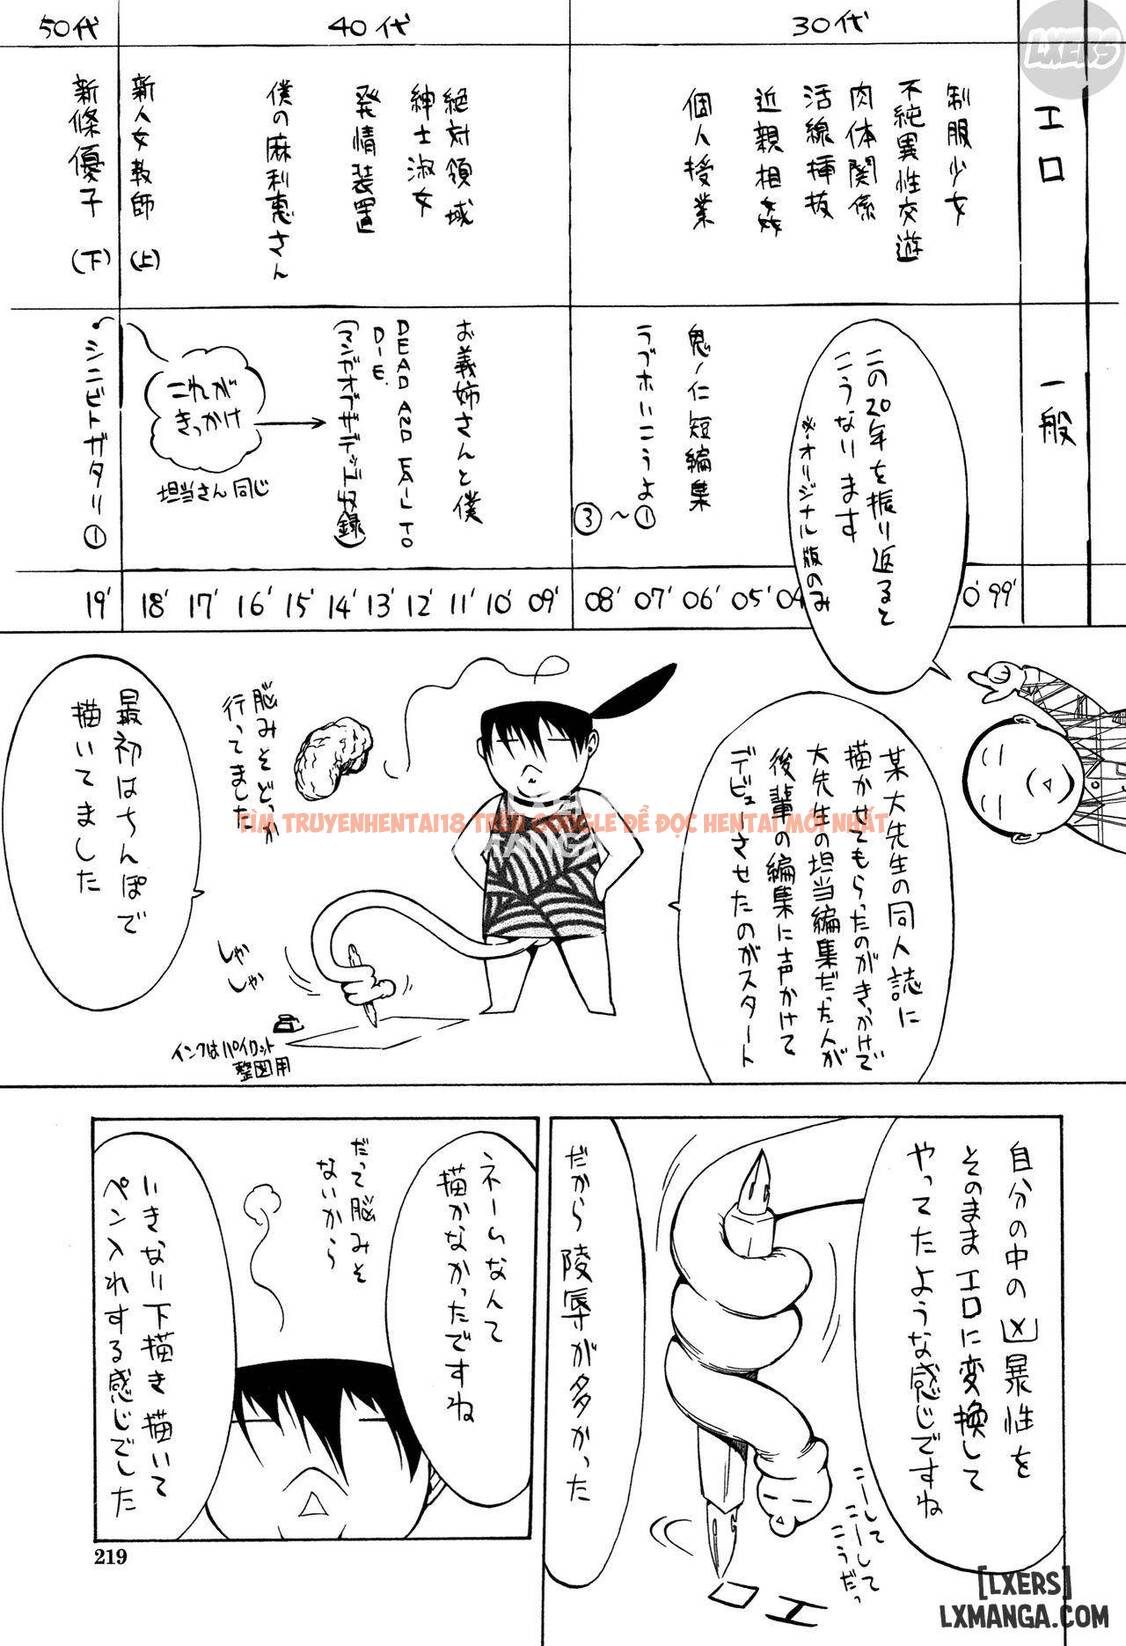 LXERS
50代
40代
30代
エロ
制服少女
不純異性交遊
肉体関係
活線挿抜
近親相姦
個人授業
絶対領域
紳士淑女
発情装置
僕の麻利恵さん
新人女教師(上)
新條優子(下)
一般
鬼ノ仁短編集
ラブホいこうよ①〜③
お義姉さんと僕
DEAD AND FAIL TO
DIE.
(マンガオブザデッド収録)
シニビトガタリ①
これが
きっかけ
担当さん同じ
この20年を振り返ると
こうなります
※オリジナル版のみ
19'
18' 17' 16' 15' 14' 13' 12' 11' 10' 09'
08' 07' 06' 05' 04
0' 99'
某大先生の同人誌に
描かせてもらったのがきっかけで
大先生の担当編集だった人が
後輩の編集に声かけて
デビューさせたのがスタート
脳みそどっか
行ってました
最初はちんぽで
描いてました
しゃか
しゃか
インクはパイロット
製図用
TÌM TRUYENHENTAI18 TRÊN GOOGLE ĐỂ ĐỌC HENTAI MỚI NHẤT
MANGA
自分の中の凶暴性を
そのままエロに変換して
やってたような感じですね
だから陵辱が多かった
こーして
こーして
こうだっ
エロ
ネームなんて
描かなかったですね
だって脳みそ
ないから
いきなり下描き描いて
ペン入れする感じでした
219
[LXERS]
LXMANGA.COM